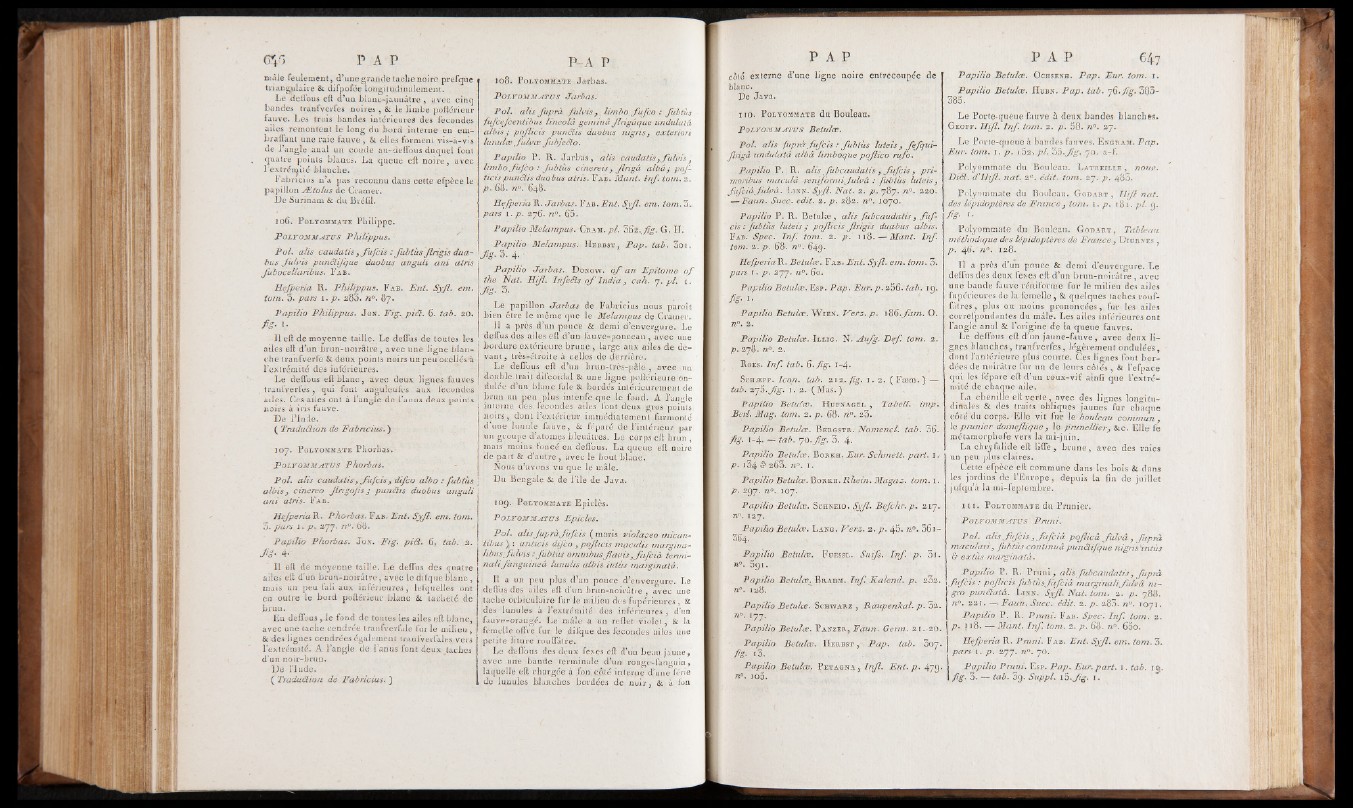 646 P A P
mâle seulement, d'une grande tache noire presque
triangulaire & disposée longitudinalement.
Le dessous est d'un blanc-jaunâtre, avec cinq
bandes transverses noires, & le limbe postérieur
fauve. Les trois bandes intérieures des secondes
ailes remontent le long du bord interne en em-
brassant une raie fauve, & elles forment vis-à-vis
de l'angle anal un coude au-dessous duquel sont
quatre points blancs. La queue est noire, avec
l'extrémité blanche.
Fabricius n'a pas reconnu dans cette espèce le
papillon Ætolus de Cramer.
De Surinam & du Brésil.
106. POLYOMMATE Philippe.
POLYOMMATUS Philippus.
Pol. alis caudatis, fuscis : subtùs strigis dua-
bus fulvis punctisque duobus anguli ani atris
subocellaribus. FAB.
Hesperia R. Philippus. FAB. Ent. Syst. em.
tom. 3. pars 1. p. 283. nº. 87.
Papilio Philippus. JON. Fig. pict. 6. tab. 20.
fig. 1.
Il est de moyenne taille. Le dessus de toutes les
ailes est d'un brun-noirâtre, avec une ligne blan-
che transverse & deux points noirs un peu ocellés à
l'extrémité des inférieures.
Le dessous est blanc, avec deux lignes fauves
transverses, qui sont anguleuses aux secondes
ailes. Ces ailes ont à l'angle de l'anus deux points
noirs à iris fauve.
De l'Inde.
( Traduction de Fabricius. )
107. POLYOMMATE Phorbas.
POLYOMMATUS Phorbas.
Pol. alis caudatis, fuscis, disco albo : subtùs
albis, cinereo strigosis ; punctis duobus anguli
ani atris. FAB.
Hesperia R. Phorbas. FAB. Ent. Syst. em. tom.
3. pars 1. p. 277. nº. 66.
Papilio Phorbas. JON. Fig. pict. 6. tab. 2.
fig. 4.
Il est de moyenne taille. Le dessus des quatre
ailes est d'un brun-noirâtre, avec le disque blanc,
mais un peu sali aux inférieures, lesquelles ont
en outre le bord postérieur blanc & tacheté de
brun.
En dessous, le fond de toutes les ailes est blanc,
avec une tache cendrée transversale sur le milieu,
& des lignes cendrées également transversales vers
l'extrémité. A l'angle de l'anus sont deux taches
d'un noir-brun.
De l'Inde.
( Traduction de Fabricius. )
P A P
108. POLYOMMATE Jarbas.
POLYOMMATUS Jarbas.
Pol. alis suprà fulvis, limbo fusco : subtùs
fuscescentibus lineolâ geminâ strigâque undulatâ
albis ; posticis punctis duobus nigris, exteriori
lunulæ fulvæ subjecto.
Papilio P. R. Jarbas, alis caudatis, fulvis,
limbo fusco : subtùs cinereis, strigâ albâ ; pos-
ticis punctis duobus atris. FAB. Mant. Inf. tom. 2.
p. 68. nº. 648.
Hesperia R. Jarbas. FAB. Ent. Syst. em. tom. 3.
pars 1. p. 276. nº. 65.
Papilio Melampus. CRAM. pl. 362. fig. G. H.
Papilio Melampus. HERBST, Pap. tab. 301.
fig. 3. 4.
Papilio Jarbas. DONOW. of an Epitome of
the Nat. Hist. Insects of India, cah. 7. pl. 1.
fig. 3.
Le papillon Jarbas de Fabricius nous paroît
bien être le même que le Melampus de Cramer.
Il a près d'un pouce & demi d'envergure. Le
dessus des ailes est d'un fauve-ponceau, avec une
bordure extérieure brune, large aux ailes de de-
vant, très-étroite à celles de derrière.
Le dessous est d'un brun-très-pâle, avec un
double trait discoïdal & une ligne postérieure on-
dulée d'un blanc sale & bordés intérieurement de
brun un peu plus intense que le fond. A l'angle
interne des secondes ailes sont deux gros points
noirs, dont l'extérieur immédiatement surmonté
d'une lunule fauve, & séparé de l'intérieur par
un groupe d'atomes bleuâtres. Le corps est brun,
mais moins foncé en dessous. La queue est noire
de part & d'autre, avec le bout blanc.
Nous n'avons vu que le mâle.
Du Bengale & de l'île de Java.
109. POLYOMMATE Epiclès.
POLYOMMATUS Epicles.
Pol. alis suprà fuscis (maris violaceo mican-
tibus) : anticis disco, posticis maculis margina-
libus fulvis : subtùs omnibus flavis, fasciâ termi-
nali sanguineâ lunulis albis intùs marginatâ.
Il a un peu plus d'un pouce d'envergure. Le
dessus des ailes est d'un brun-noirâtre, avec une
tache orbiculaire sur le milieu des supérieures, &
des lunules à l'extrémité des inférieures, d'un
fauve-orangé. Le mâle a un reflet violet, & la
femelle offre sur le disque des secondes ailes une
petite liture roussâtre.
Le dessous des deux sexes est d'un beau jaune,
avec une bande terminale d'un rouge-sanguin,
laquelle est chargée à son côté interne d'une série
de lunules blanches bordées de noir, & à son
P A P
côté externe d'une ligne noire entrecoupée de
blanc.
De Java.
110. POLYOMMATE du Bouleau.
POLYOMMATUS Betulæ.
Pol. alis suprà fuscis : subtùs luteis, sesqui-
strigâ undulatâ albâ limboque postico rufo.
Papilio P. R. alis subcaudatis, fuscis, pri-
moribus maculâ reniformi fulvâ : subtùs luteis,
fasciâ fulvâ. LINN. Syst. Nat. 2. p. 787. nº. 220.
— Faun. Suec. edit. 2. p. 282. nº. 1070.
Papilio P. R. Betulæ, alis subcaudatis, fus-
cis : subtùs luteis ; posticis strigis duabus albis.
FAB. Spec. Inf. tom. 2. p. 118. — Mant. Inf.
tom. 2. p. 68. nº. 649.
Hesperia R. Betulæ. FAB. Ent. Syst. em. tom. 3.
pars 1. p. 277. nº. 60.
Papilio Betulæ. ESP. Pap. Eur. p. 256. tab. 19.
fig. 1.
Papilio Betulæ. WIEN. Verz. p. 186. fam. O.
nº. 2.
Papilio Betulæ. ILLIG. N. Ausg. Def. tom. 2.
p. 278. nº. 2.
ROES. Inf. tab. 6. fig. 1-4.
SCHÆFF. Icon. tab. 212. fig. 1. 2. ( Fœm. ) —
tab. 275. fig. 1. 2. ( Mas. )
Papilio Betulæ. HUFNAGEL, Tabell. imp.
Berl. Mag. tom. 2. p. 68. nº. 23.
Papilio Betulæ. BERGSTR. Nomencl. tab. 36.
fig. 1-4. — tab. 70. fig. 3. 4.
Papilio Betulæ. BORKH. Eur. Schmett. part. 1.
p. 134 & 263. nº. 1.
Papilio Betulæ. BORKH. Rhein. Magaz. tom. 1.
p. 297. nº. 107.
Papilio Betulæ. SCHNEID. Syst. Beschr. p. 217.
nº. 127.
Papilio Betulæ. LANG. Verz. 2. p. 45. nº. 361-
364.
Papilio Betulæ. FUESSL. Suiss. Inf. p. 31.
nº. 591.
Papilio Betulæ. BRAHM. Inf. Kalend. p. 232.
nº. 128.
Papilio Betulæ. SCHWARZ, Raupenkal. p. 32.
nº. 177.
Papilio Betulæ. PANZER, Faun. Germ. 21. 20.
Papilio Betulæ. HERBST, Pap. tab. 307.
fig. 13.
Papilio Betulæ. PETAGNA, Inst. Ent. p. 479.
nº. 103.
P A P 647
Papilio Betulæ. OCHSENH. Pap. Eur. tom. 1.
Papilio Betulæ. HUBN. Pap. tab. 76. fig. 383-
385.
Le Porte-queue fauve à deux bandes blanches.
GEOFF. Hist. Inf. tom. 2. p. 58. nº. 27.
Le Porte-queue à bandes fauves. ENGRAM. Pap.
Eur. tom. 1. p. 152. pl. 35. fig. 70. a-f.
Polyommate du Bouleau. LATREILLE, nouv.
Dict. d'Hist. nat. 2e. édit. tom. 27. p. 485.
Polyommate du Bouleau. GODART, Hist nat.
des lépidoptères de France, tom. 1. p. 181. pl. 9.
fig. 1.
Polyommate du Bouleau. GODART, Tableau
méthodique des lépidoptères de France, DIURNES,
p. 46. nº. 128.
Il a près d'un pouce & demi d'envergure. Le
dessus des deux sexes est d'un brun-noirâtre, avec
une bande fauve réniforme sur le milieu des ailes
supérieures de la femelle, & quelques taches rous-
sâtres, plus ou moins prononcées, sur les ailes
correspondantes du mâle. Les ailes inférieures ont
l'angle anal & l'origine de la queue fauves.
Le dessous est d'un jaune-fauve, avec deux li-
gnes blanches, transverses, légèrement ondulées,
dont l'antérieure plus courte. Ces lignes sont bor-
dées de noirâtre sur un de leurs côtés, & l'espace
qui les sépare est d'un roux-vif ainsi que l'extré-
mité de chaque aile.
La chenille est verte, avec des lignes longitu-
dinales & des traits obliques jaunes sur chaque
côté du corps. Elle vit sur le bouleau commun,
le prunier domestique, le prunellier, &c. Elle se
métamorphose vers la mi-juin.
La chrysalide est lisse, brune, avec des raies
un peu plus claires.
Cette espèce est commune dans les bois & dans
les jardins de l'Europe, depuis la fin de juillet
jusqu'à la mi-septembre.
111. POLYOMMATE du Prunier.
POLYOMMATUS Pruni.
Pol. alis fuscis, fasciâ posticâ fulvâ, suprà
maculari, subtùs continuâ punctisque nigris intùs
& extùs marginatâ.
Papilio P. R. Pruni, alis subcaudatis, suprà
fuscis : posticis subtùs fasciâ marginali fulvâ ni-
gro punctatâ. LINN. Syst. Nat. tom. 2. p. 788.
nº. 221. — Faun. Suec. édit. 2. p. 283. nº. 1071.
Papilio P. R. Pruni. FAB. Spec. Inf. tom. 2.
p. 118. — Mant. Inf. tom. 2. p. 68. nº. 650.
Hesperia R. Pruni. FAB. Ent. Syst. em. tom. 3.
pars 1. p. 277. nº. 70.
Papilio Pruni. ESP. Pap. Eur. part. 1. tab. 19.
fig. 3. — tab. 39. Suppl. 15. fig. 1.